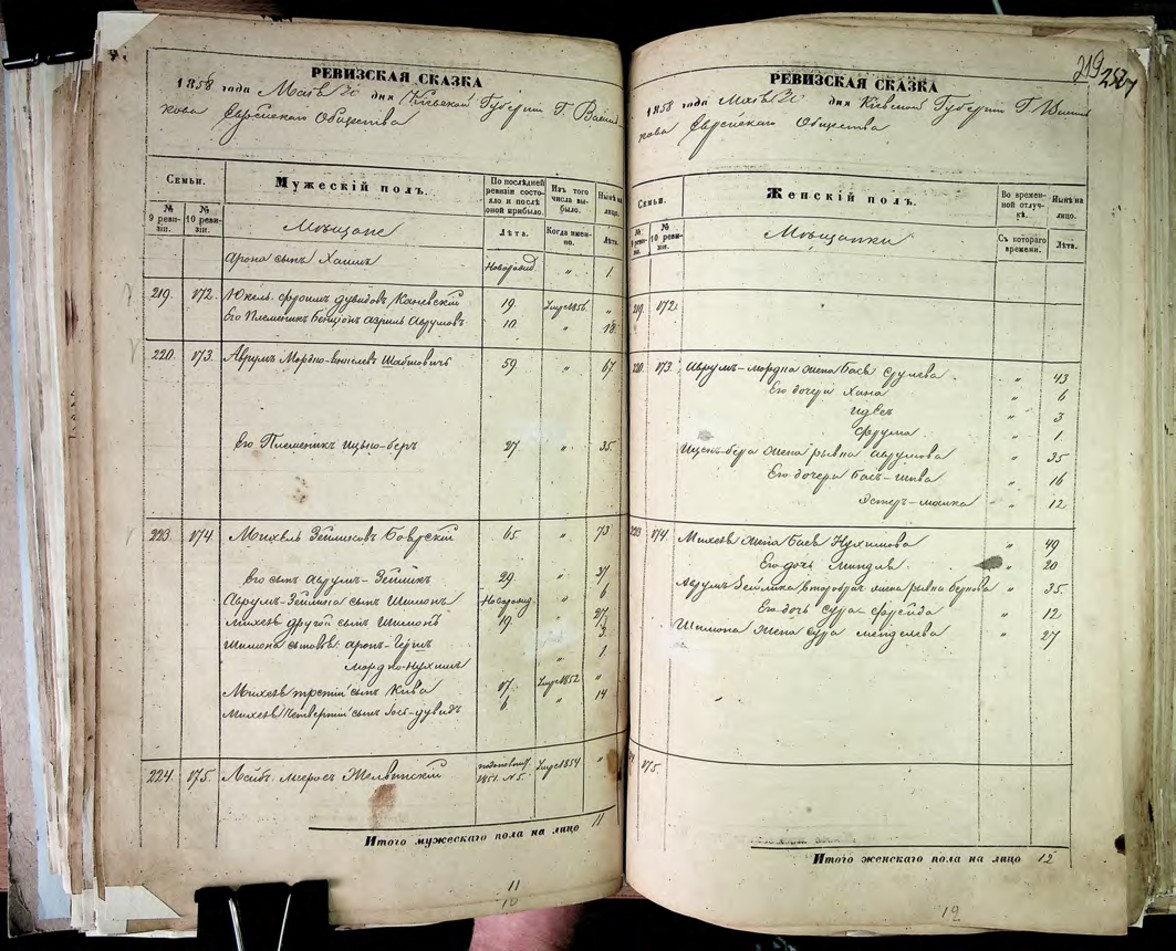 РЕВИЗСКАЯ СКАЗКА
1858 года Маія 20 дня Кіевской Губерніи Г. Василь-
кова Еврейскаго Общества
Семьи.
Мужескій полъ.
По послѣдней ревизіи состояло и послѣ оной прибыло.
Изъ того числа выбыло.
Нынѣ на лицо.
№ 9 ревизіи.
№ 10 ревизіи.
Мѣщане
Лѣта.
Когда именно.
Лѣта.
Арона сынъ Хаимъ Новорожд. „ 1
219. 172. Юкель Фроимъ Дувидовъ Каневскій 19. 1856 „
Его Племеникъ Бенціонъ Азриль Аврумовъ 10. „ 18
220. 173. Аврумъ Мордко Шабсовичъ 59. „ 67
Его Племеникъ Ицько-Беръ 27 „ 35.
223. 174. Михель Зейликовъ 65. „ 73
Его сынъ Аврумъ-Зейликъ 29. „ 37
Аврумъ-Зейлика сынъ Шимонъ Новорожд. „ 6
Михеля другой сынъ Шимонъ 19. „ 27
Шимона сыновья: Аронъ-Гершъ 3
Мордко-Нухимъ „ 1
Михеля третій сынъ Кива 17. 1852 „
Михеля Четвертый сынъ Іось-Дувидъ 6. „ 14
224. 175. Лейбъ 1851. №5. 1854 „
Итого мужескаго пола на лицо 11
11
10
219
РЕВИЗСКАЯ СКАЗКА
1858 года Маія 20 дня Кіевской Губерніи Г. Василь-
кова Еврейскаго Общества
Семьи.
Женскій полъ.
Во временной отлучкѣ.
Нынѣ на лицо.
№ 10 ревизіи.
Мѣщанки
Съ котораго времени.
Лѣта.
219. 172.
220. 173. Аврумъ-Мордка жена Бася Срулева „ 43
Его дочери Хана „ 6
Идесъ „ 3
Фрума „ 1
Ицько-Бера жена Рывка Аврумова „ 35
Его дочери Бась-Шива „ 16
Эстеръ-Малка „ 12
223 174. Михеля жена Бася Нухимова „ 49
Его дочь Миндля „ 20
Аврумъ Зейлика второбрач. жена Рывка Беркова „ 35.
Его дочь Сура-Фрейда „ 12
Шимона жена Сура Менделева „ 27
175.
Итого женскаго пола на лицо 12
12